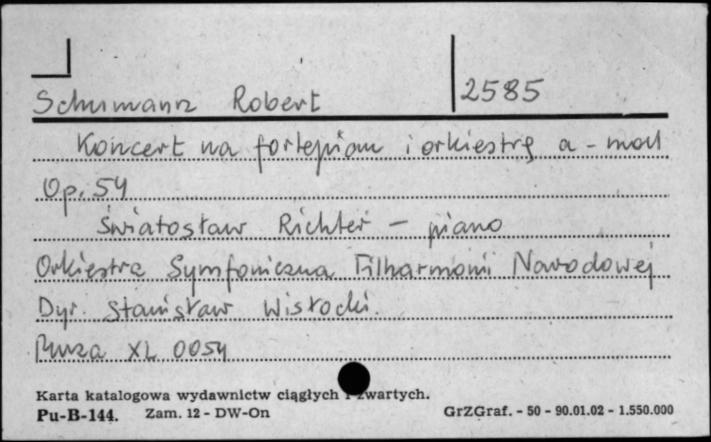 Schumann Robert 2585
Koncert na fortepian i orkiestrę a-moll
Op. 54
Światosław Richter - piano
Orkiestra Symfoniczna Filharmonii Narodowej
Dyr. Stanisław Wisłocki.
Muza XL 0054
Karta katalogowa wydawnictw ciągłych i zwartych.
Pu-B-144. Zam. 12 - DW-On GrZGraf. - 50 - 90.01.02 - 1.550.000